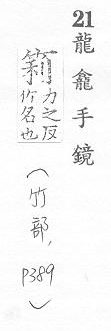 21龍龕手鏡
力之反
竹名也
(竹部,
P389)